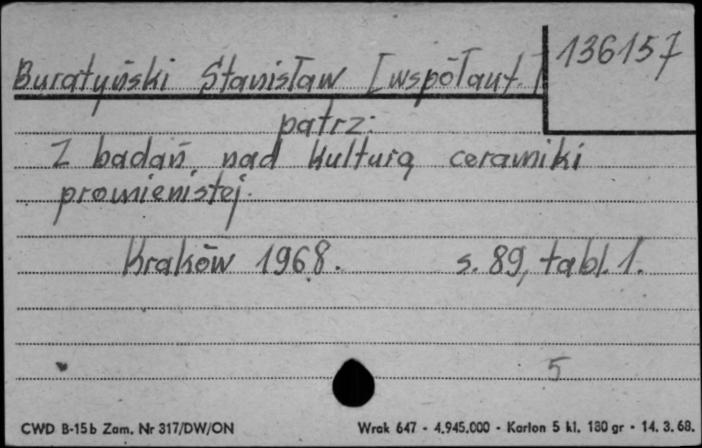 136157
Buratyński Stanisław [współaut.]
patrz:
Z badań nad kulturą ceramiki
promienistej.
Kraków 1968. s. 89, tabl. 1.
5
CWD B-15b Zam. Nr 317/DW/ON Wrak 647 - 4.945.000 - Karton 5 kl. 180 gr - 14. 3. 68.